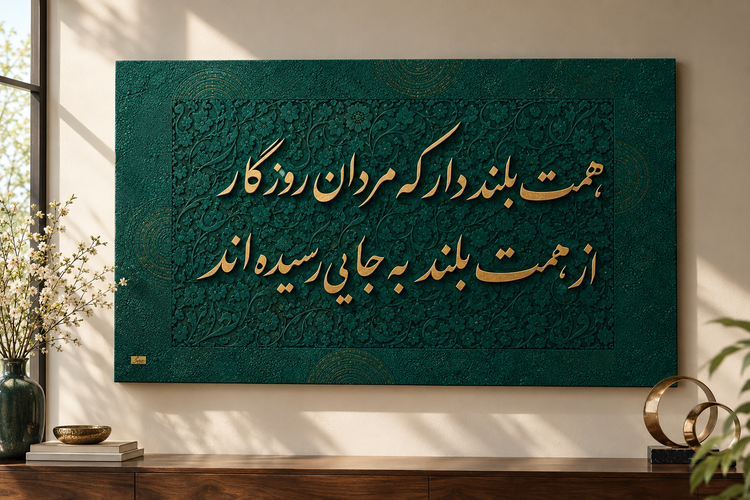 همت بلند دار که مردان روزگار
از همت بلند به جایی رسیده اند